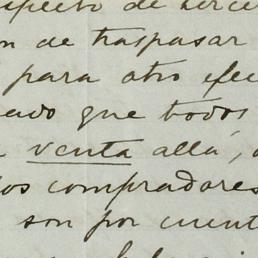 de
n de traspasar
para otro efec
ado que todos
venta allá,
os compradores
son por cuent